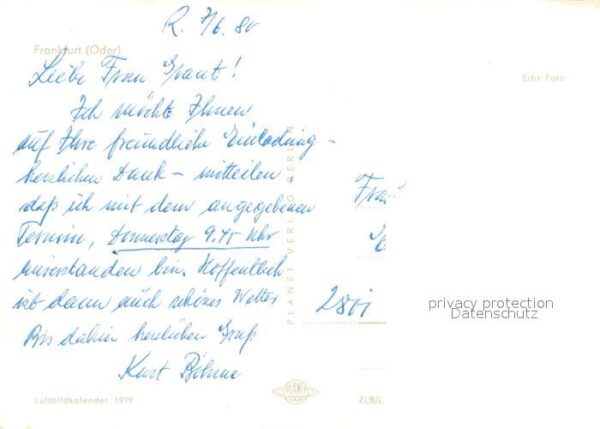 R. 7/6. 80
Frankfurt (Oder)
Liebe Frau Graut!
Echt Foto
Ich möchte Ihnen
auf Ihre freundliche Einladung -
herzlichen Dank - mitteilen
daß ich mit dem angegebenen
Termin, Donnerstag 9.45 Uhr
einverstanden bin. Hoffentlich
ist dann auch schönes Wetter
Bis dahin herzlichen Gruß
Kurt Böhme
PLANET-VERLAG BERLIN
Frau
privacy protection
Datenschutz
Luftbildkalender 1979
PLANET
ZLB/L